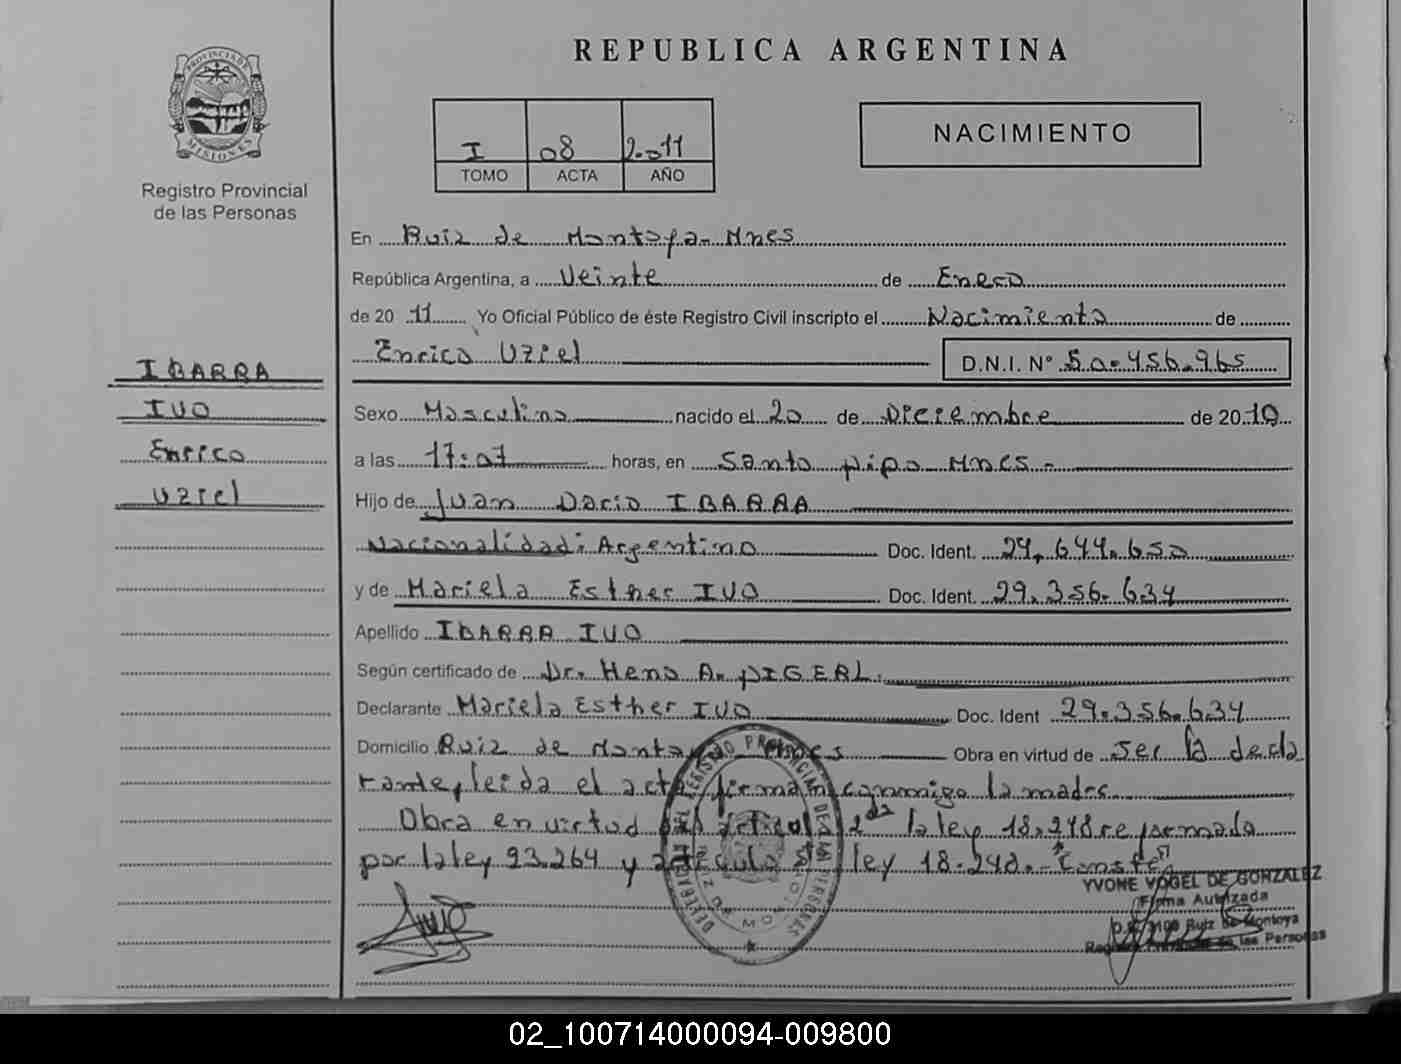 PROVINCIA DE
MISIONES
Registro Provincial
de las Personas
IBARRA
IVO
Enrico
Uziel
REPUBLICA ARGENTINA
I 08 2.011
TOMO ACTA AÑO
NACIMIENTO
En Ruiz de Montoya - Mnes
República Argentina, a Veinte de Enero
de 20 11 Yo Oficial Público de éste Registro Civil inscripto el Nacimiento de
Enrico Uziel D.N.I. Nº 50.456.965
Sexo Masculino nacido el 20 de Diciembre de 20 10
a las 17:07 horas, en Santo pipo Mnes -
Hijo de Juan Dario IBARRA
Nacionalidad: Argentino Doc. Ident. 24.644.650
y de Mariela Esther IVO Doc. Ident. 29.356.634
Apellido IBARRA IVO
Según certificado de Dr. Hens A. PIGERL.
Declarante Mariela Esther IVO Doc. Ident 29.356.634
Domicilio Ruiz de Montoya Mnes Obra en virtud de ser la decla
rante, leida el acta firman conmigo la madre
Obra en virtud del articulo 2 da la ley 18.248 reformada
por la ley 23.264 y articulo ley 18.248.- "Conste"
REGISTRO PROVINCIAL DE LAS PERSONAS
RUIZ DE MONTOYA
YVONE VOGEL DE GONZALEZ
Firma Autorizada
Ruiz de Montoya
Registro Provincial de las Personas
02_100714000094-009800